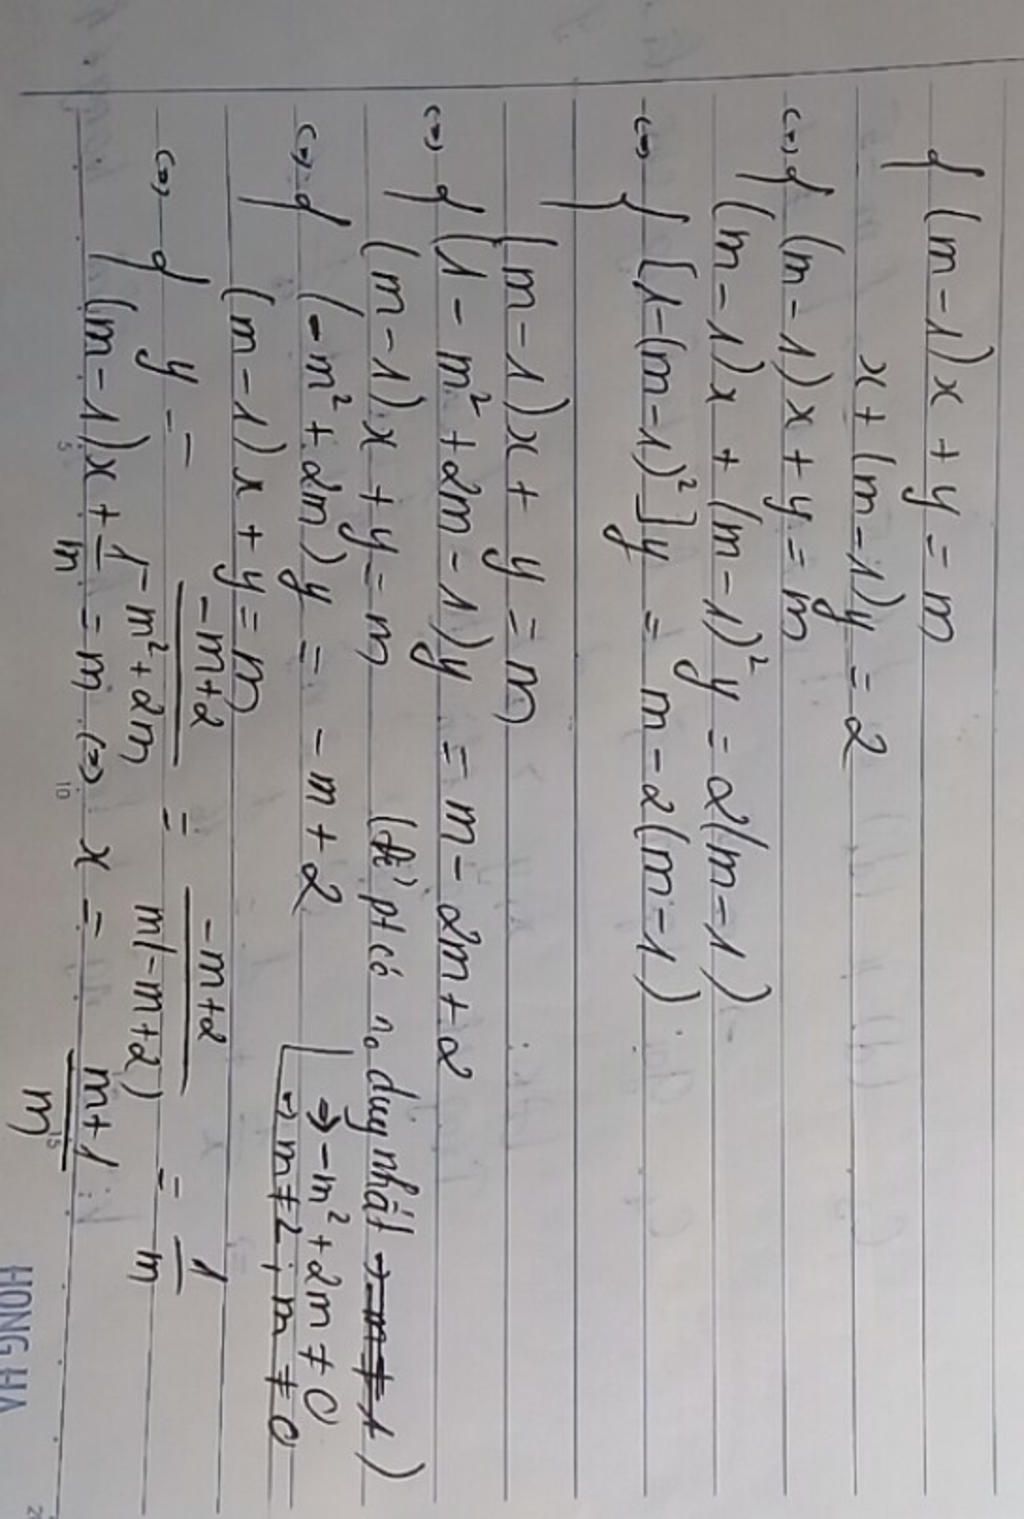 { (m-1)x + y = m
x + (m-1)y = 2
<=> { (m-1)x + y = m
(m-1)x + (m-1)² y = 2(m-1)
<=> { [1-(m-1)²]y = m - 2(m-1)
(m-1)x + y = m
<=> { (1 - m² + 2m - 1)y = m - 2m + 2
(m-1)x + y = m (để pt có n₀ duy nhất
<=> { (-m² + 2m)y = -m + 2 => -m² + 2m ≠ 0
(m-1)x + y = m => m ≠ 2; m ≠ 0
<=> { y = (-m+2)/(-m²+2m) = (-m+2)/(m(-m+2)) = 1/m
(m-1)x + 1/m = m <=> x = (m+1)/m
HONG HA
5
10
15